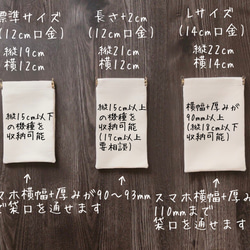 標準サイズ
(12cm口金)
縦19cm
横12cm
縦15cm以下
の機種を
収納可能
スマホ横幅+厚みが90~93mm
で袋口を通せます
長さ+2cm
(12cm口金)
縦21cm
横12cm
縦15cm以上
の機種を
収納可能
(17cm以上
要相談)
Lサイズ
(14cm口金)
縦22cm
横14cm
横幅+厚み
90mm以上
(縦18cm以下
収納可能
スマホ横幅+厚みが
110mmまで
袋口を通せます